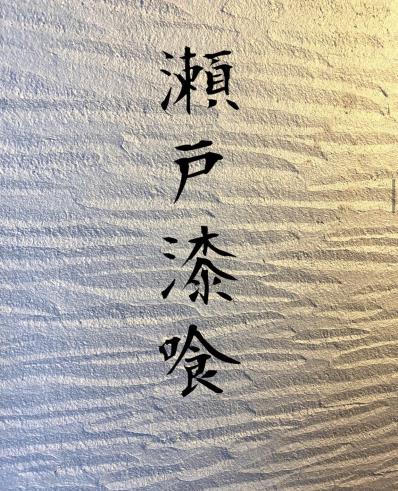 瀬戸漆喰